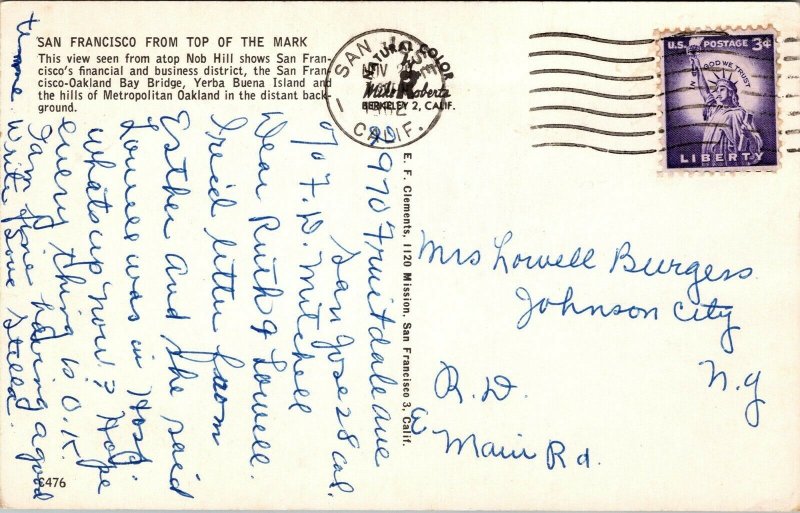 SAN FRANCISCO FROM TOP OF THE MARK
This view seen from atop Nob Hill shows San Fran-
cisco's financial and business district, the San Fran-
cisco-Oakland Bay Bridge, Yerba Buena Island and
the hills of Metropolitan Oakland in the distant back-
ground.
SAN JOSE
CALIF.
NATURAL COLOR
Mike Roberts
BERKELEY 2, CALIF.
U.S. POSTAGE 3¢
IN GOD WE TRUST
LIBERTY
E. F. Clements, 1120 Mission, San Francisco 3, Calif.
1970 Fruitdale ave
San Jose 28 Cal.
c/o F. D. Mitchell
Dear Ruth & Lowell.
I recd letter from
Esther and she said
Lowell was in Hosp.
whats up now? Hope
every thing is O.K.
I am fine having a good
time Write Love Stella.
Mrs Lowell Burgess
Johnson City
R.D. N.Y
Main Rd.
C476